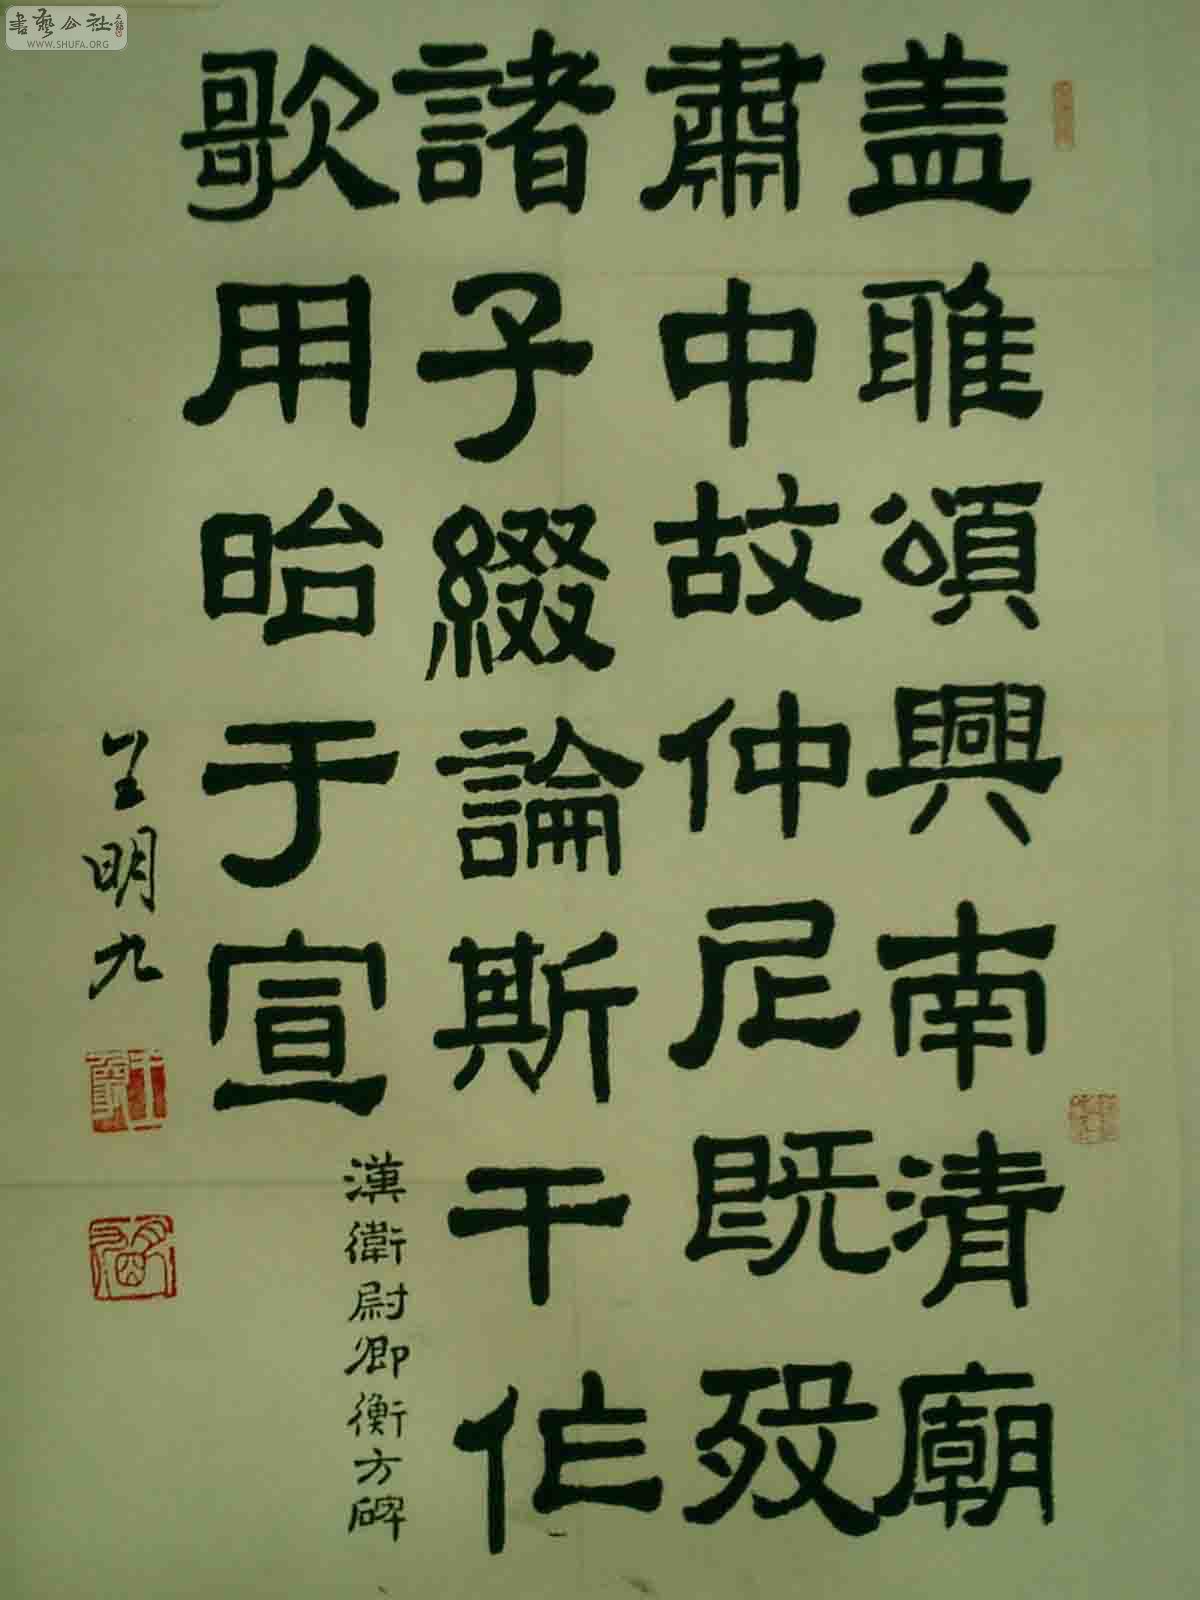 書藝公社
WWW.SHUFA.ORG
盖雅頌興南清廟
肅中故仲尼既歿
諸子綴論斯干作
歌用昭于宣
漢衛尉卿衡方碑
王明九